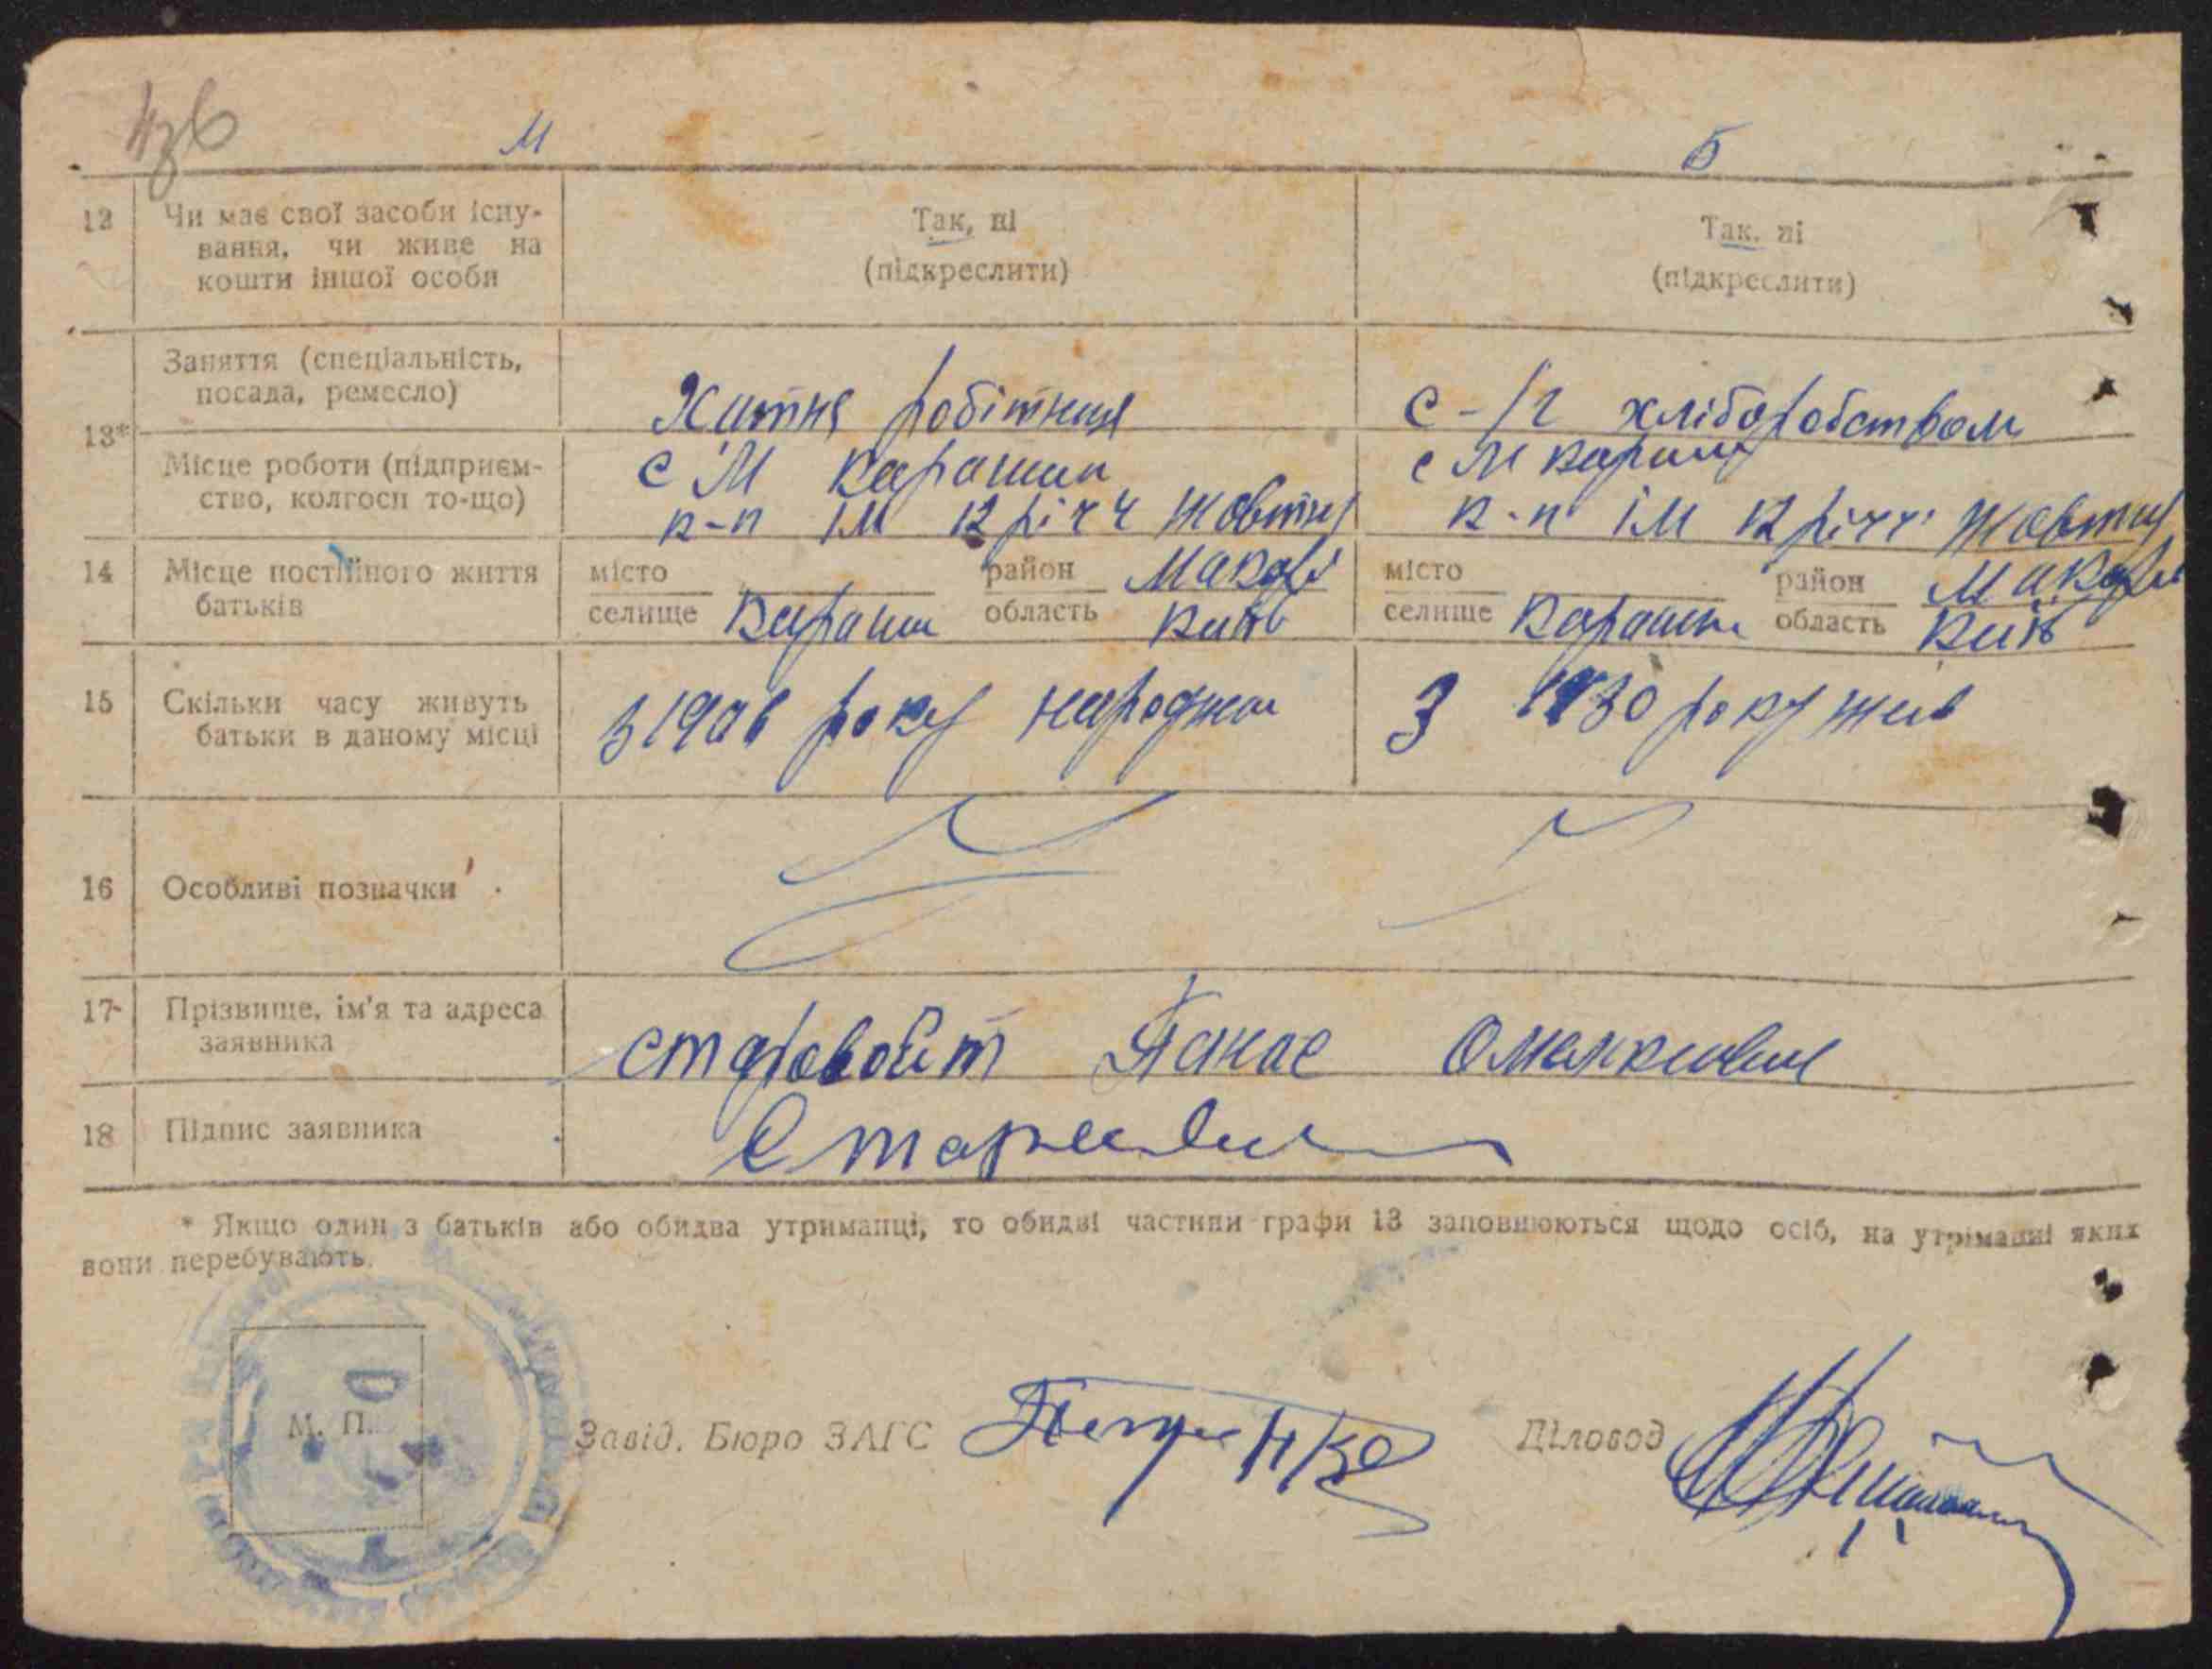 436
М Б
12 Чи має свої засоби існу- Так, ні Так, ні
вання, чи живе на (підкреслити) (підкреслити)
кошти іншої особи
13* Заняття (спеціальність, Хатня робітниця с-/г хліборобством
посада, ремесло)
Місце роботи (підприєм- с М Карашин с М Карашин
ство, колгосп то-що) к-п ім 12 річч Жовтня к-п ім 12 річч Жовтня
14 Місце постійного життя місто район Макарів місто район Макарів
батьків селище Карашин область Київ селище Карашин область Київ
15 Скільки часу живуть з 1906 року народжен З 1930 року жив
батьки в даному місці
16 Особливі позначки
17 Прізвище, ім'я та адреса
заявника Старовойт Панас
18 Підпис заявника
* Якщо один з батьків або обидва утриманці, то обидві частини графи 13 заповнюються щодо осіб, на утріманні яких
вони перебувають.
М. П. Завід. Бюро ЗАГС Діловод